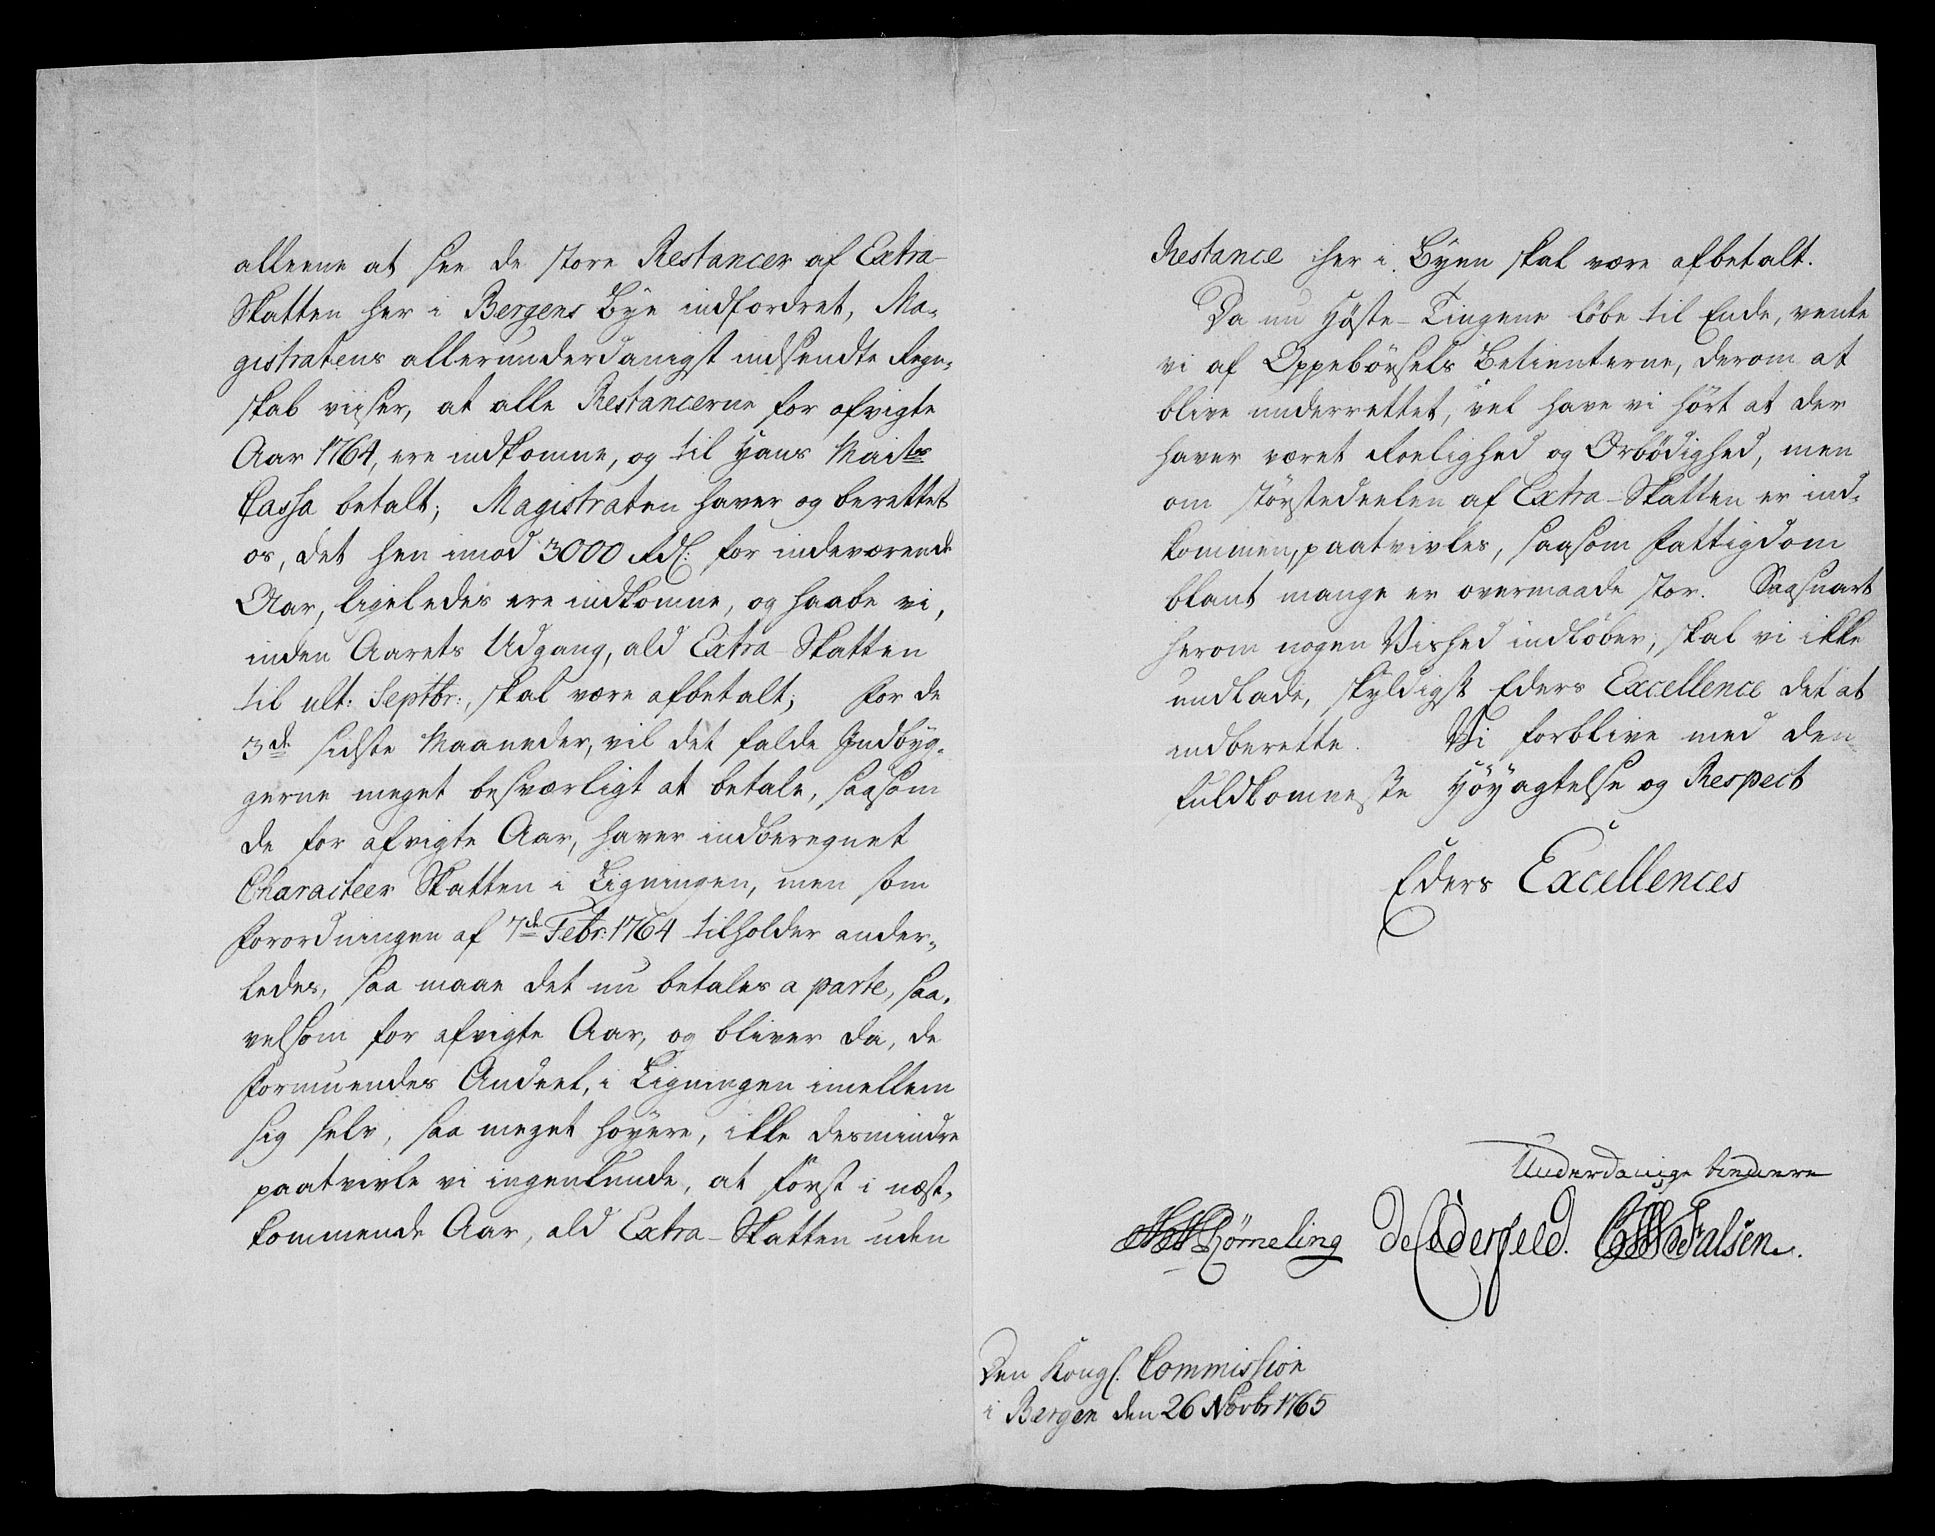 alleene at see de store Restancer af Extra-
Skatten her i Bergens Bye indfordret, Ma-
gistratens allerunderdanigst indsendte Regn-
skab viiser, at alle Restancerne for afvigte
Aar 1764, ere indkomne, og til Hans Maits
Cassa betalt; Magistraten haver og berettet
os, det hen imod 3000 Rdl: for indeværende
Aar, ligeledes ere indkomne, og haabe vi,
inden Aarets Udgang, ald Extra-Skatten
til ult: Septbr:, skal være afbetalt; For de
3de sidste Maaneder, vil det falde Indbyg-
gerne meget besværligt at betale, saasom
de for afvigte Aar, haver indberegnet
Characteer Skatten i Ligningen, men som
Forordningen af 7de Febr: 1764 tilholder ander-
ledes, saa maae det nu betales a parte, saa-
velsom for afvigte Aar, og bliver da, de
Formuendes Andeel, i Ligningen imellem
sig selv, saa meget höyere, ikke desmindre
paatvivle vi ingenlunde, at först i næst-
kommende Aar, ald Extra-Skatten uden
Restance her i Byen skal være afbetalt.
Da nu Höste-Tingene löbe til Ende, vente
vi af Oppebörsels Betienterne, derom at
blive underrettet, vel have vi hört at der
haver været Roelighed og Ærbödighed, men
om störstedeelen af Extra-Skatten er ind-
kommen, paatvivles, saasom Fattigdom
blant mange er overmaade stor. Saasnart
herom nogen Vished indlöber, skal vi ikke
undlade, skyldigst Eders Excellence det at
indberette. Vi forblive med den
fuldkomneste Höyagtelse og Respect
Eders Excellences
Underdanige tienere
Römeling de Cederfeld. Falsen.
Den Kongl. Commission
i Bergen den 26 Novbr 1765